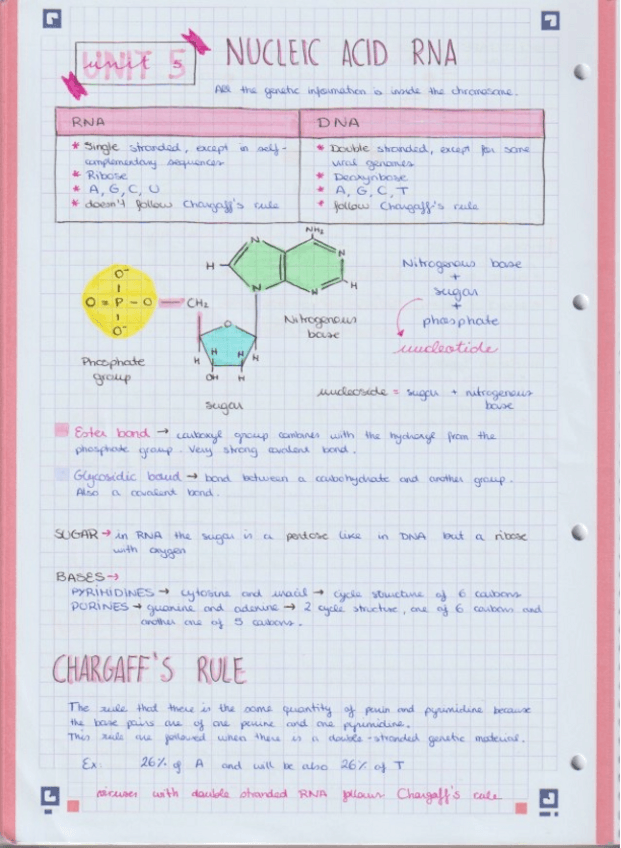 UNIT 5
unit 5
NUCLEIC ACID RNA
All the genetic information is inside the chromosome.
RNA
DNA
* Single stranded, except in self-
complementary sequences
* Ribose
* A, G, C, U
* doesn't follow Chargaff's rule
* Double stranded, except for some
viral genomes
* Deoxyribose
* A, G, C, T
* follow Chargaff's rule
O-
O = P - O
O-
CH2
Phosphate
group
NH2
N
N
N
N
H
H
Nitrogenous
base
O
H
H
H
H
OH
H
sugar
Nitrogenous base
+
sugar
+
phosphate
nucleotide
nucleoside = sugar + nitrogenous
base
Ester bond → carboxyl group combines with the hydroxyl from the
phosphate group. Very strong covalent bond.
Glycosidic bond → bond between a carbohydrate and another group.
Also a covalent bond.
SUGAR → in RNA the sugar is a pentose like in DNA but a ribose
with oxygen
BASES →
PYRIMIDINES → cytosine and uracil → cycle structure of 6 carbons
PURINES → guanine and adenine → 2 cycle structure, one of 6 carbons and
another one of 5 carbons.
CHARGAFF'S RULE
The rule that there is the same quantity of purin and pyrimidine because
the base pairs are of one purine and one pyrimidine.
This rule are followed when there is a double-stranded genetic material.
Ex: 26% of A and will be also 26% of T
viruses with double stranded RNA follows Chargaff's rule